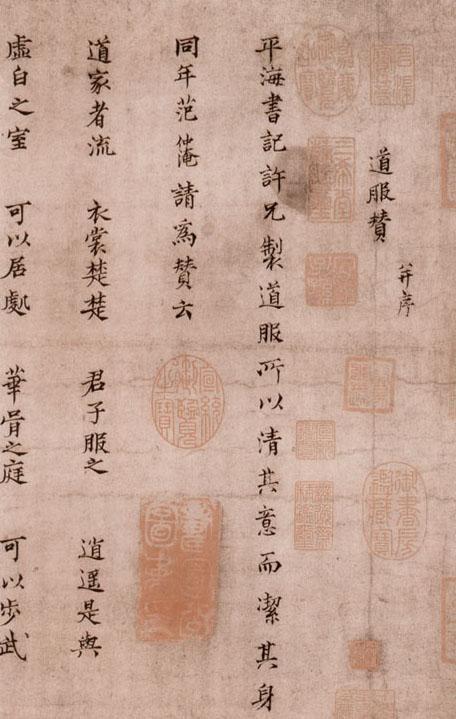 道服贊 并序
平海書記許兄製道服所以清其意而潔其身
同年范仲淹請爲贊云
道家者流 衣裳楚楚 君子服之 逍遥是與
虛白之室 可以居處 華胥之庭 可以步武
御書房鑑藏寶
宣統御覽之寶